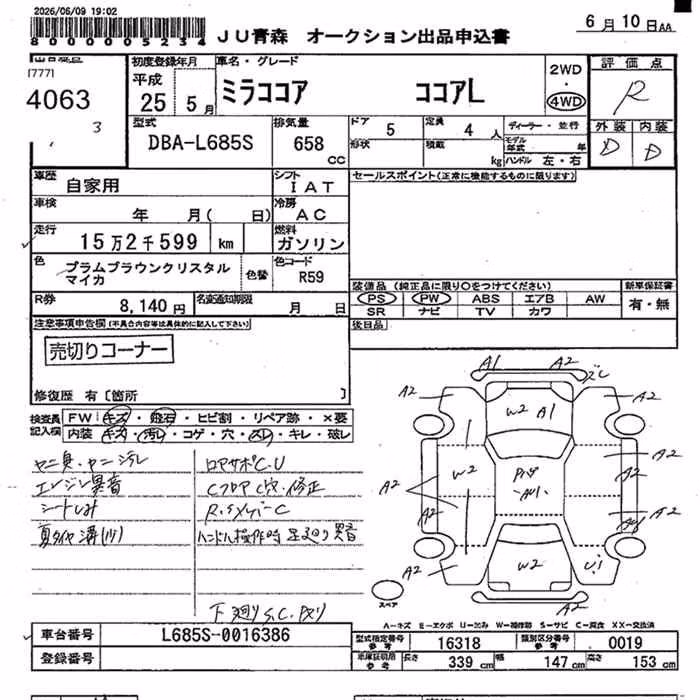 2026/06/09 19:02
8000005234
JU青森 オークション出品申込書
6月10日AA
[777]
4063
3
初度登録年月
平成
25 5月
車名・グレード
ミラココア ココアL
2WD
・
4WD
評価点
R
型式
DBA-L685S
排気量
658
CC
ドア
5
定員
4人
形状
積載
kg
ディーラー・並行
モデル年式 年
ハンドル 左・右
外装 内装
D D
車歴
自家用
シフト
IAT
セールスポイント(正常に機能するものに限ります)
車検
年 月( 日)
冷房
AC
走行
15万2千599 km
燃料
ガソリン
色
プラムブラウンクリスタル
マイカ
色替
色コード
R59
R券
8,140円
名変通知期限
月 日
装備品(純正品に限り○をつけてください)
新車保証書
PS PW ABS エアB AW
SR ナビ TV カワ
有・無
後日品
注意事項申告欄(不具合内容等は具体的に記入して下さい)
売切りコーナー
修復歴 有〔箇所 〕
検査員
記入欄
FW キズ・飛石・ヒビ割・リペア跡・×要
内装 キズ・汚レ・コゲ・穴・スレ・キレ・破レ
ヤニ臭・ヤニ汚レ
エンジン異音
シートしみ
夏タイヤ溝(小)
ロアサポC.U
ハンドル操作時 足廻り異音
下廻りS.C.サビ
A1 A2
A2 W2 A1 A2
A2 W2 A2
A2 A2
A2 W2 A2
スペア
A−キズ E−エクボ U−凹み W−補修跡 S−サビ C−腐食 XX−交換済
車台番号
L685S-0016386
登録番号
型式指定番号
参考
16318
類別区分番号
参考
0019
車庫証明用
参考
長さ
339 cm
幅
147 cm
高さ
153 cm